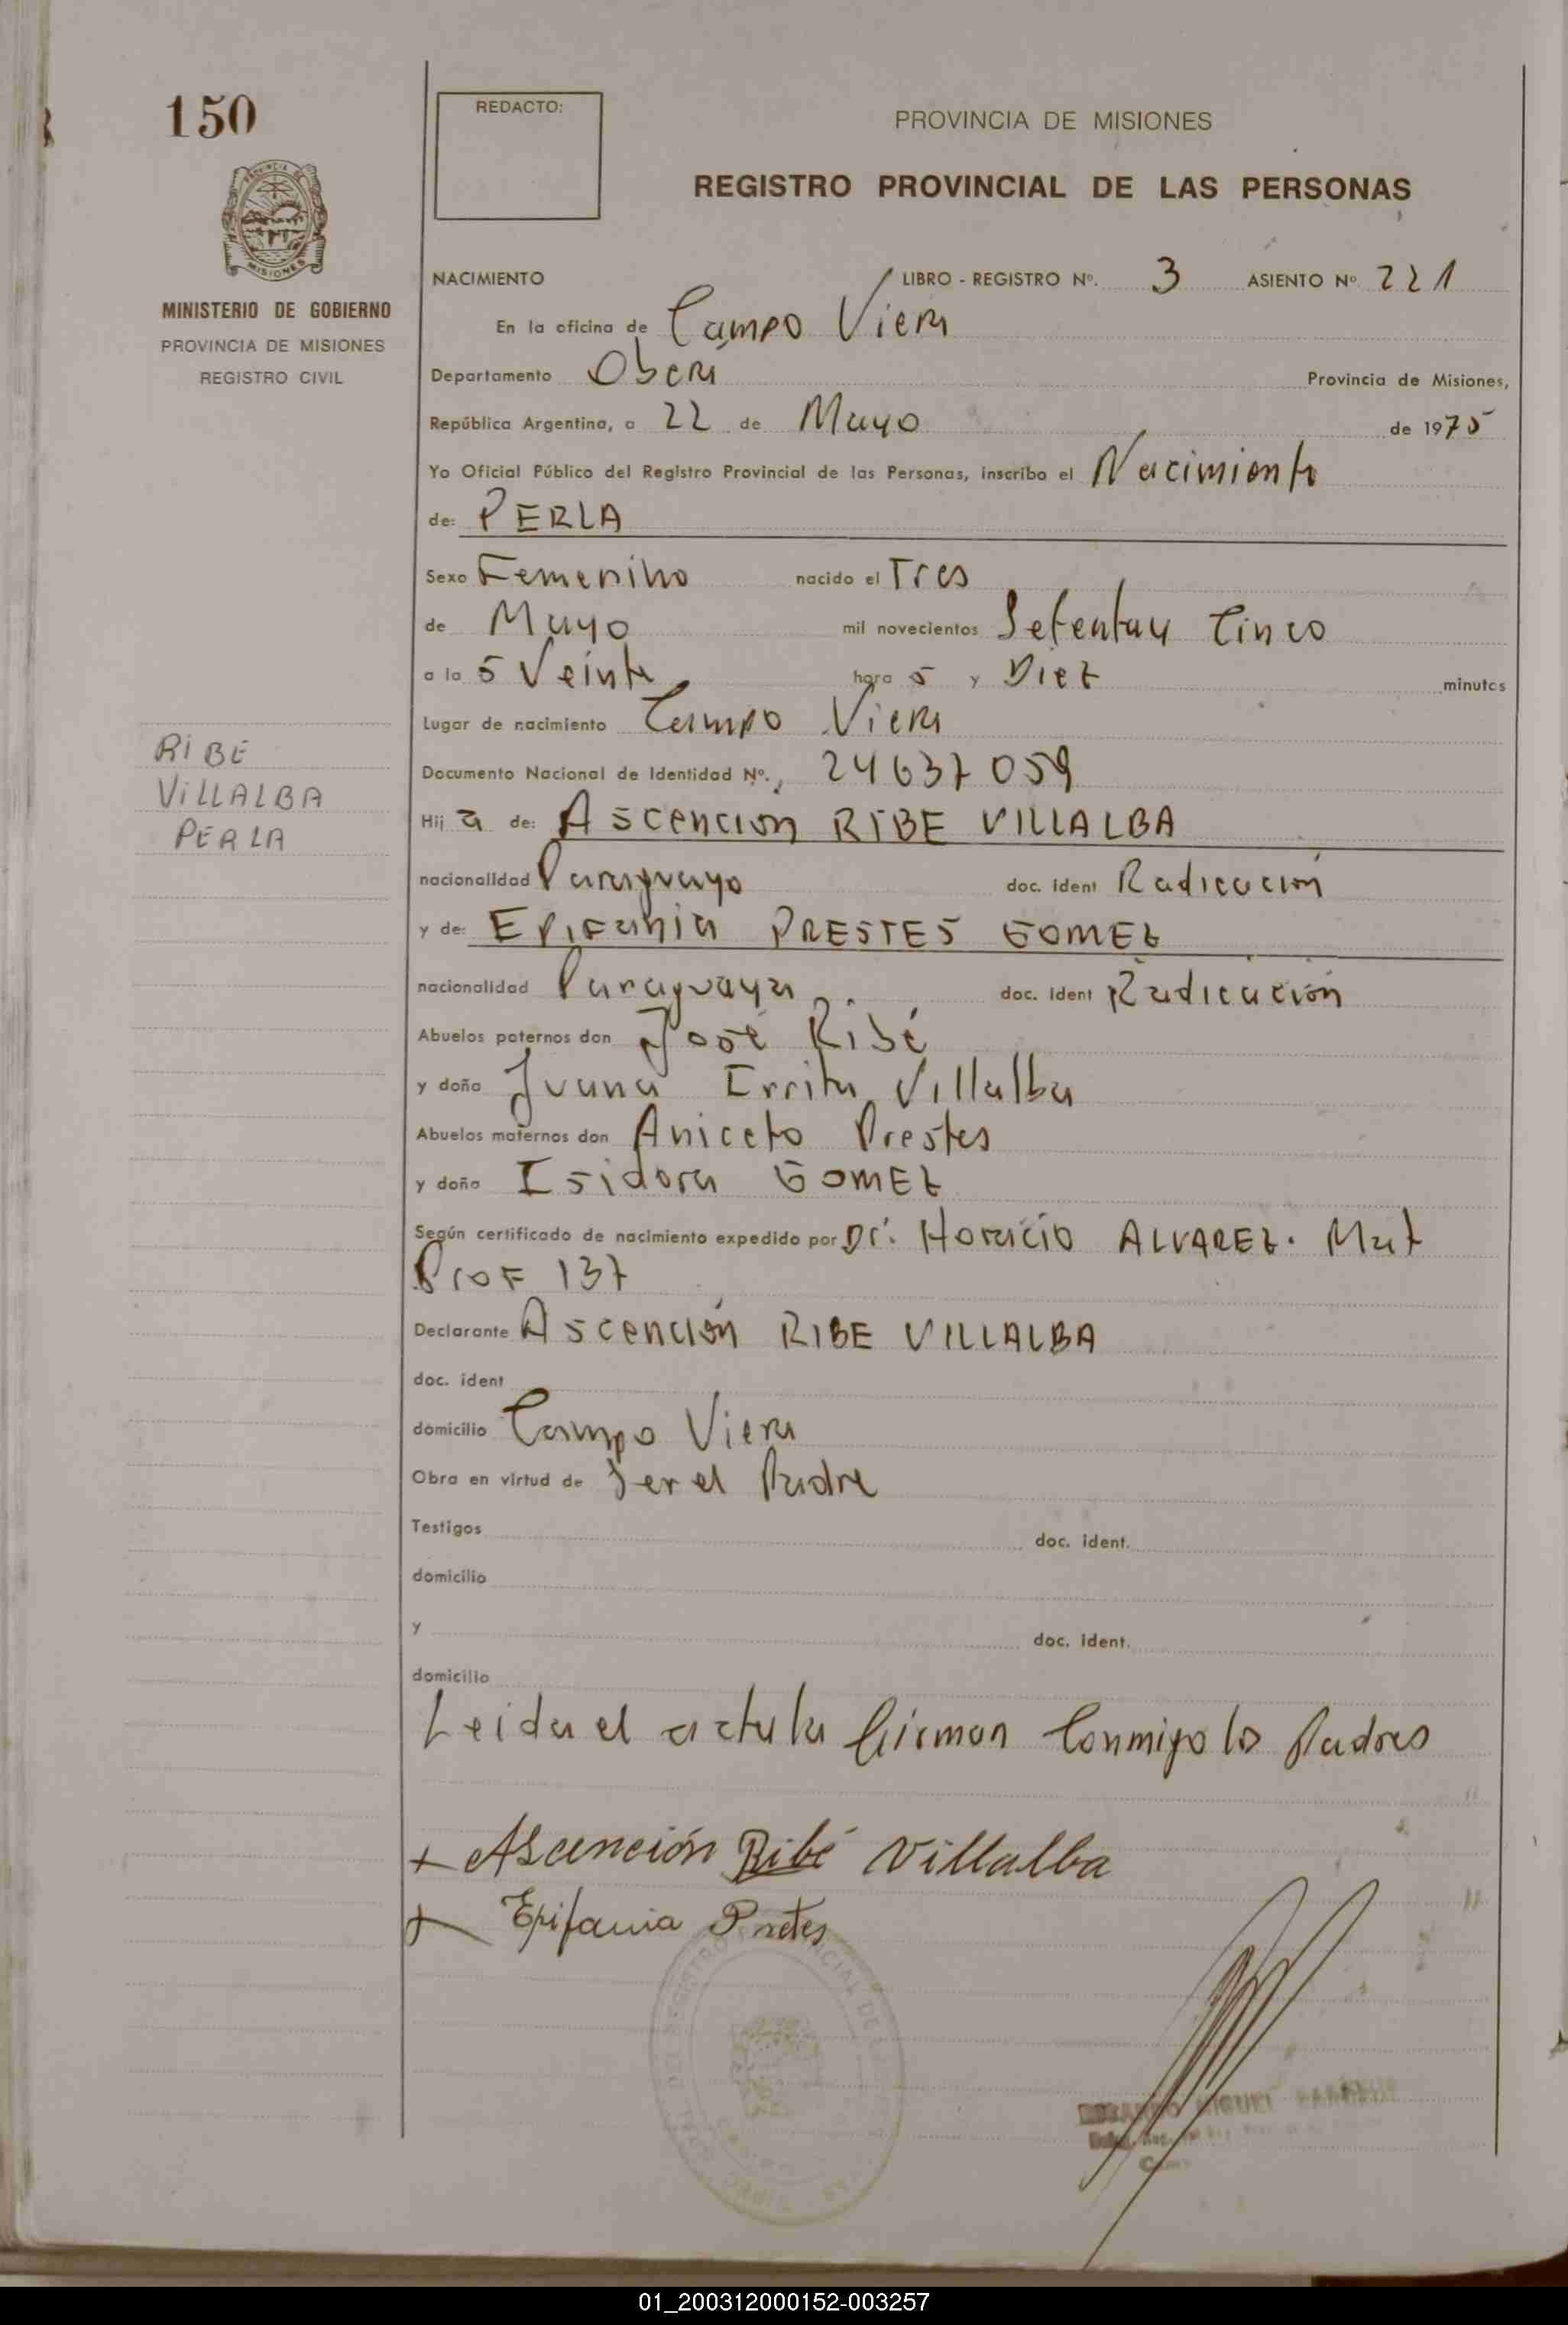 150
REDACTO:
PROVINCIA DE MISIONES
REGISTRO PROVINCIAL DE LAS PERSONAS
PROVINCIA DE
MISIONES
MINISTERIO DE GOBIERNO
PROVINCIA DE MISIONES
REGISTRO CIVIL
NACIMIENTO LIBRO - REGISTRO Nº. 3 ASIENTO Nº 221
En la oficina de Campo Viera
Departamento Oberá Provincia de Misiones,
República Argentina, a 22 de Mayo de 1975
Yo Oficial Público del Registro Provincial de las Personas, inscribo el Nacimiento
de: PERLA
Sexo Femenino nacido el Tres
de Mayo mil novecientos Setentay Cinco
a la s Veinte hora s y Diez minutos
Lugar de nacimiento Campo Viera
Documento Nacional de Identidad Nº. 24637059
RIBE
VILLALBA
PERLA
Hij a de: Ascención RIBE VILLALBA
nacionalidad Paraguayo doc. ident Radicación
y de: Epifania PRESTES GOMEZ
nacionalidad Paraguaya doc. ident Radicación
Abuelos paternos don José Ribé
y doña Juana Villalba
Abuelos maternos don Aniceto Prestes
y doña Isidora GOMEZ
Según certificado de nacimiento expedido por Dr. Horacio ALVAREZ. Mat
Prof 137
Declarante Ascención RIBE VILLALBA
doc. ident
domicilio Campo Viera
Obra en virtud de Ser el Padre
Testigos doc. ident.
domicilio
y doc. ident.
domicilio
Leida el acta la firman Conmigo los Padres
+ Ascención Ribé Villalba
+ Epifania Pretes
MIGUEL
01_200312000152-003257